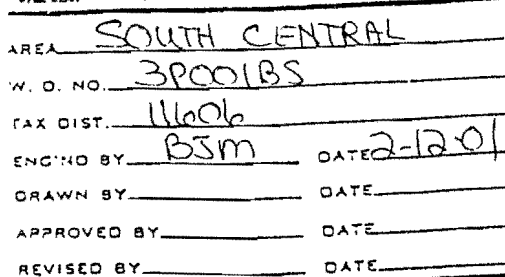 AREA SOUTH CENTRAL
W. O. NO. 3P001BS
TAX DIST. 11606
ENG'ND BY BJM DATE 2-12-01
DRAWN BY DATE
APPROVED BY DATE
REVISED BY DATE